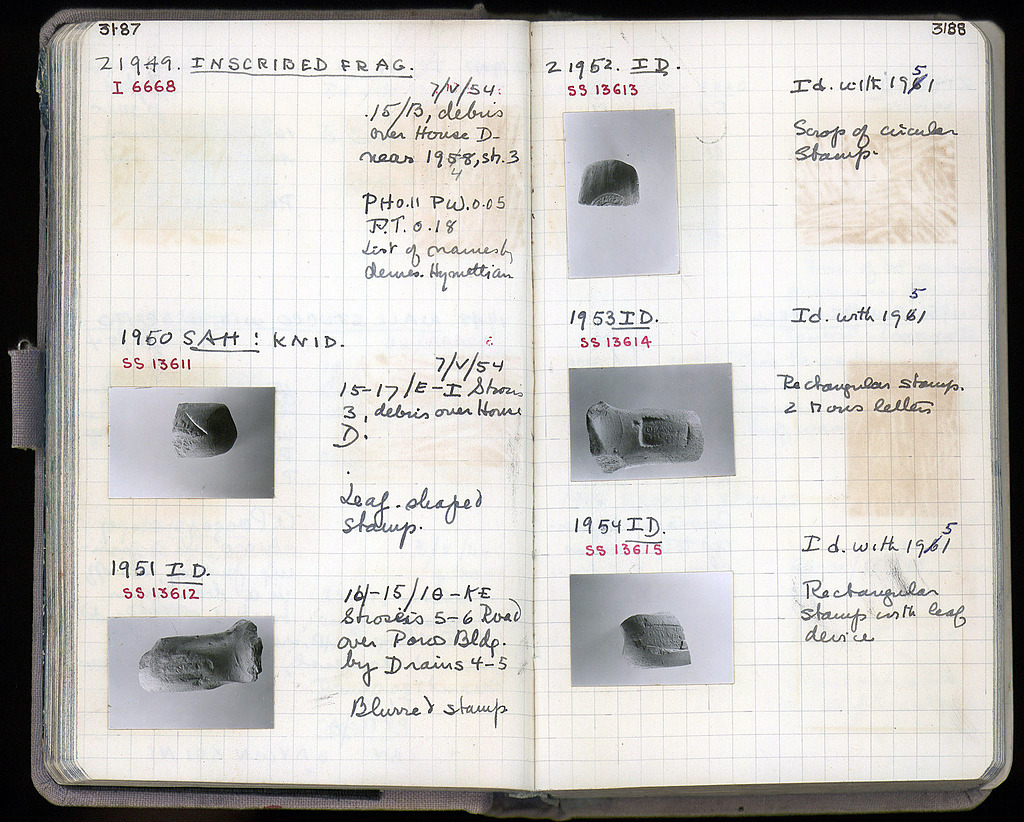 3187
21949. INSCRIBED FRAG.
I 6668
7/V/54:
.15/B, debris
over House D-
near 1958, str. 3
4
PH 0.11 PW. 0.05
P.T. 0.18
List of names by
demes. Hymettian
1950 SAH: KNID.
SS 13611
7/V/54
15-17/E-I Stroses
3, debris over House
D.
Leaf-shaped
stamp.
1951 ID.
SS 13612
-15/18-KE
Stroseis 5-6 Road
over Poros Bldg.
by Drains 4-5
Blurred stamp
3188
21952. ID.
SS 13613
5
Id. with 1961
Scrap of circular
stamp.
1953 ID.
SS 13614
5
Id. with 1961
Rectangular stamp.
2 rows letters
1954 ID.
SS 13615
5
Id. with 1961
Rectangular
stamp with leaf
device